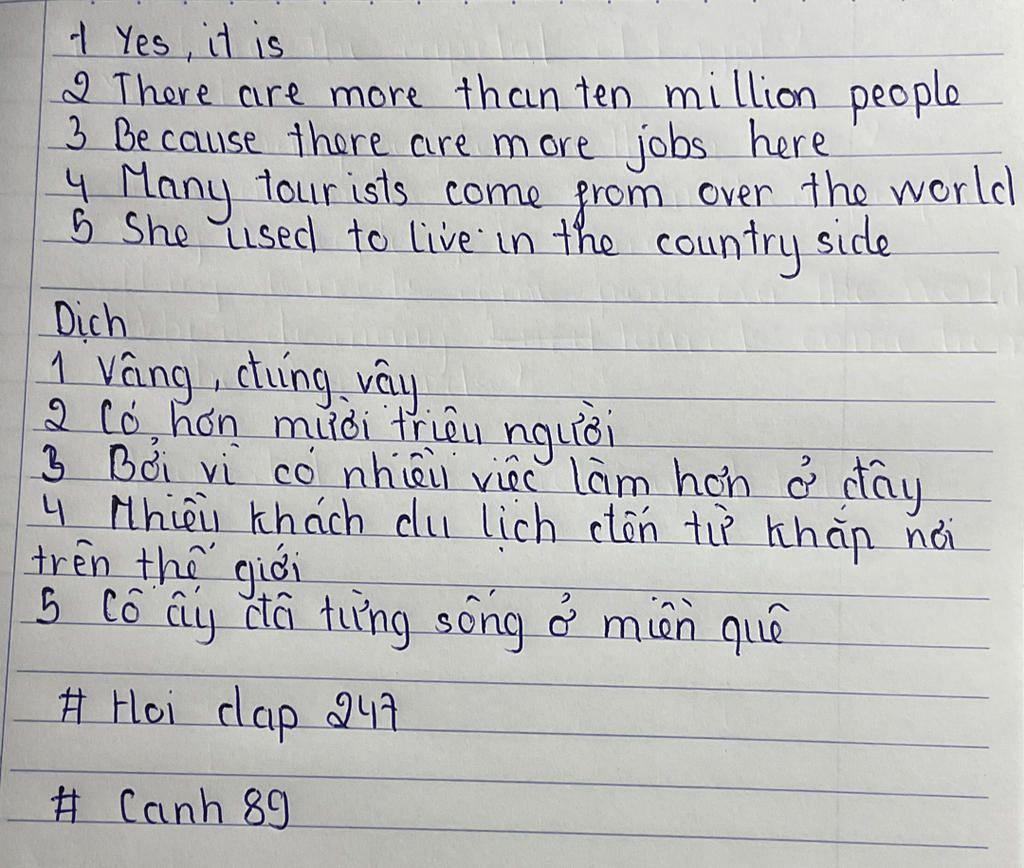 1 Yes, it is
2 There are more than ten million people
3 Because there are more jobs here
4 Many tourists come from over the world
5 She used to live in the country side
Dịch
1 Vâng, đúng vậy
2 Có hơn mười triệu người
3 Bởi vì có nhiều việc làm hơn ở đây
4 Nhiều khách du lịch đến từ khắp nơi
trên thế giới
5 Cô ấy đã từng sống ở miền quê
# Hoi dap 247
# Canh 89